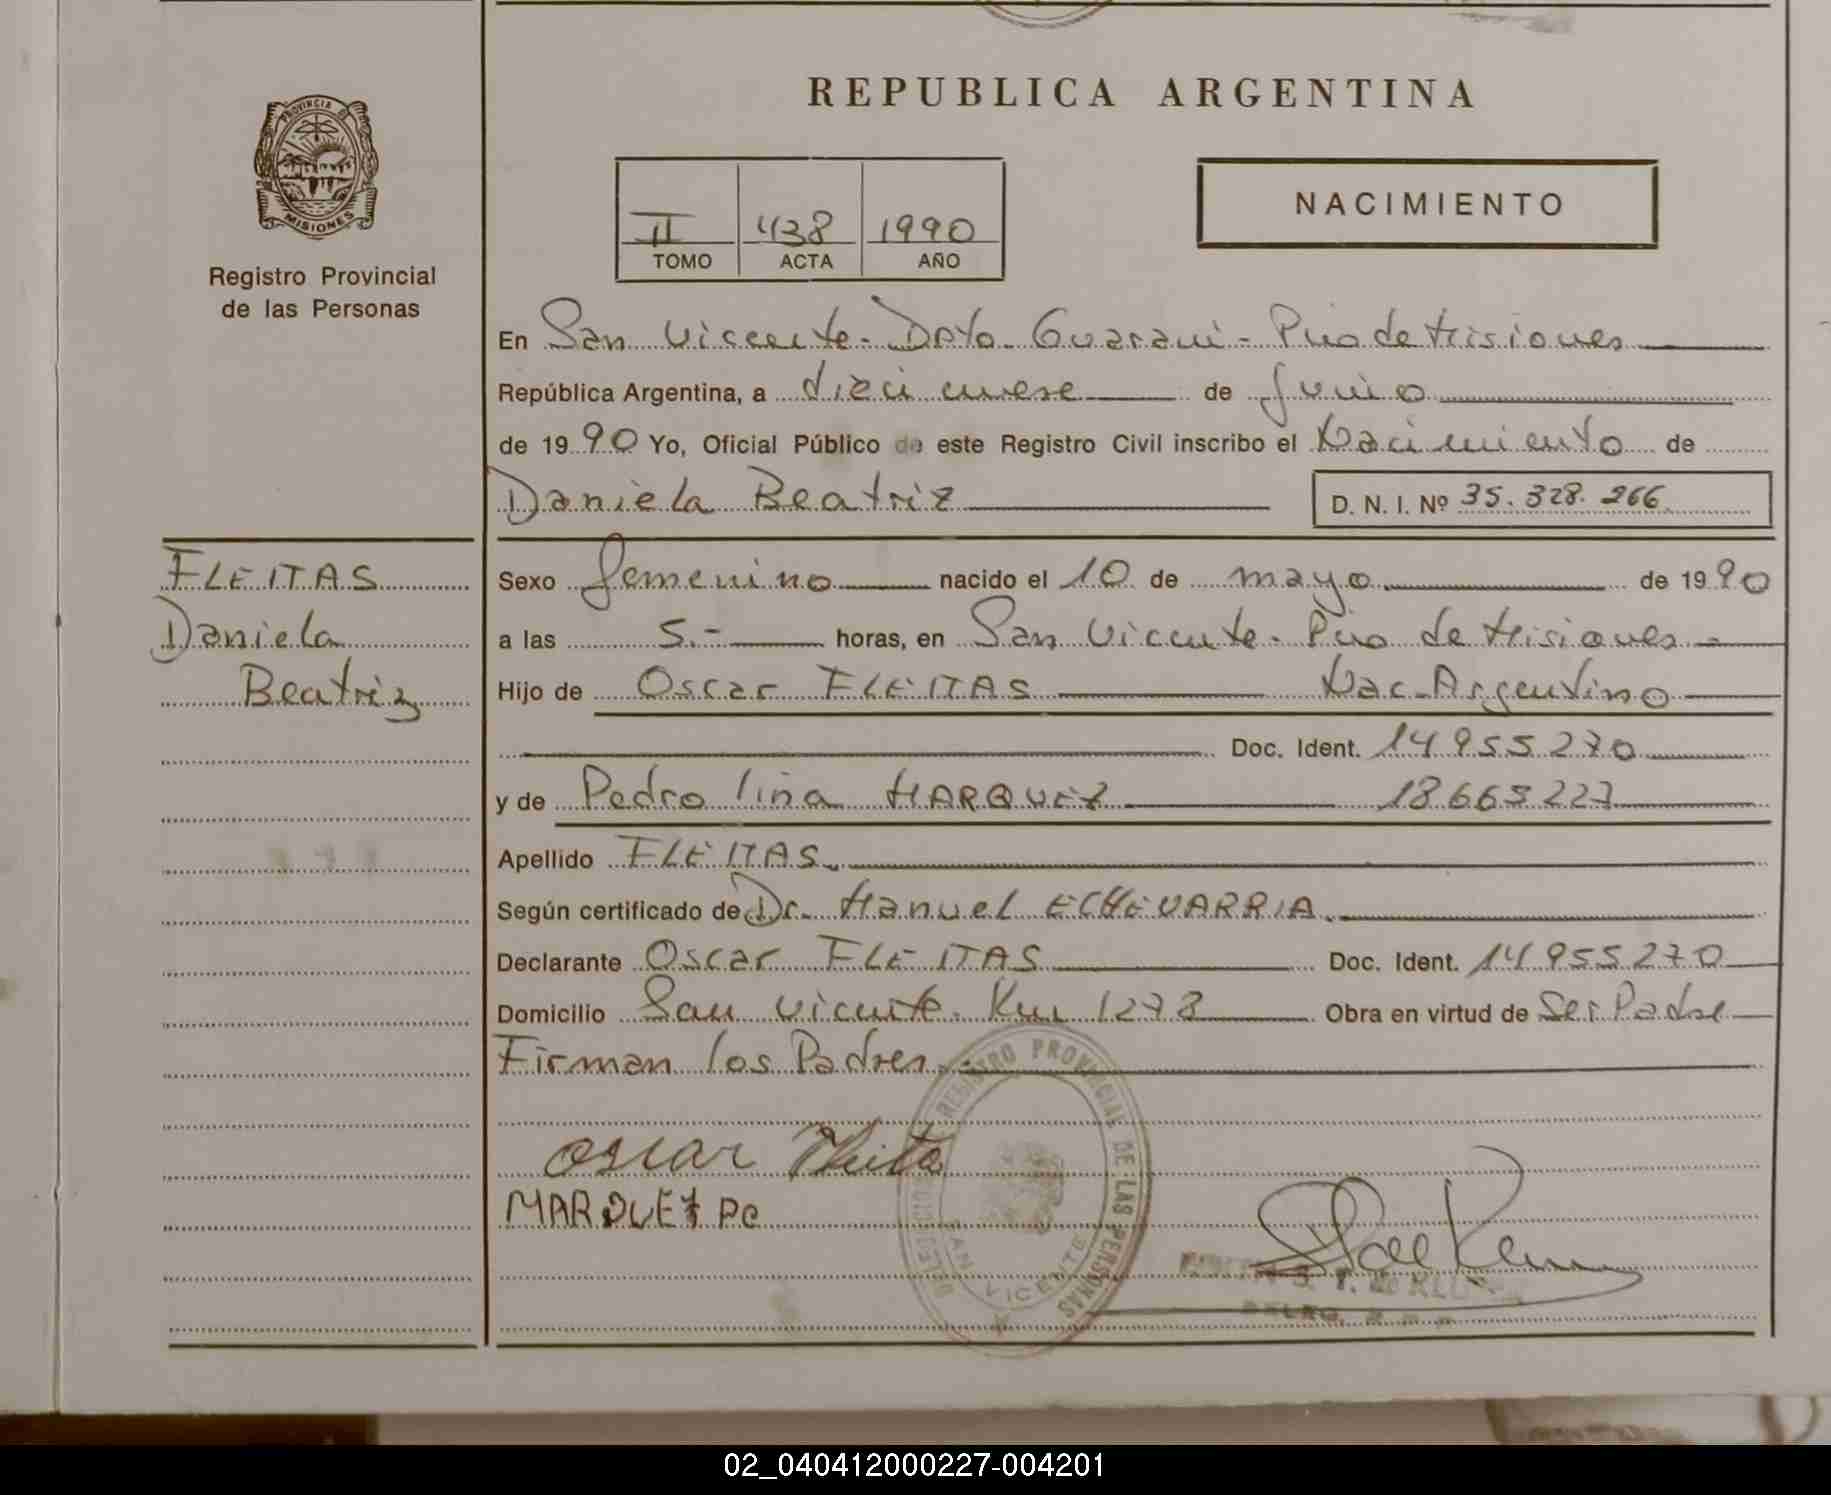 REPUBLICA ARGENTINA
PROVINCIA DE
MISIONES
Registro Provincial
de las Personas
II 438 1990
TOMO ACTA AÑO
NACIMIENTO
En San Vicente - Dpto. Guaraní - Pcia de Misiones
República Argentina, a diecinueve de Junio
de 1990 Yo, Oficial Público de este Registro Civil inscribo el Nacimiento de
Daniela Beatriz
D. N. I. Nº 35.328.266
FLEITAS
Daniela
Beatriz
Sexo femenino nacido el 10 de mayo de 1990
a las 5.- horas, en San Vicente - Pcia de Misiones -
Hijo de Oscar FLEITAS Nac. Argentino
Doc. Ident. 14955270
y de Pedrolina MARQUEZ 18663227
Apellido FLEITAS.
Según certificado de Dr. Manuel ECHEVARRIA.
Declarante Oscar FLEITAS Doc. Ident. 14955270
Domicilio San Vicente. Km 1278 Obra en virtud de Ser Padre
Firman los Padres.-
oscar Fleita
MARQUEZ Pe
DELEGACION REGISTRO PROVINCIAL DE LAS PERSONAS
SAN VICENTE
02_040412000227-004201